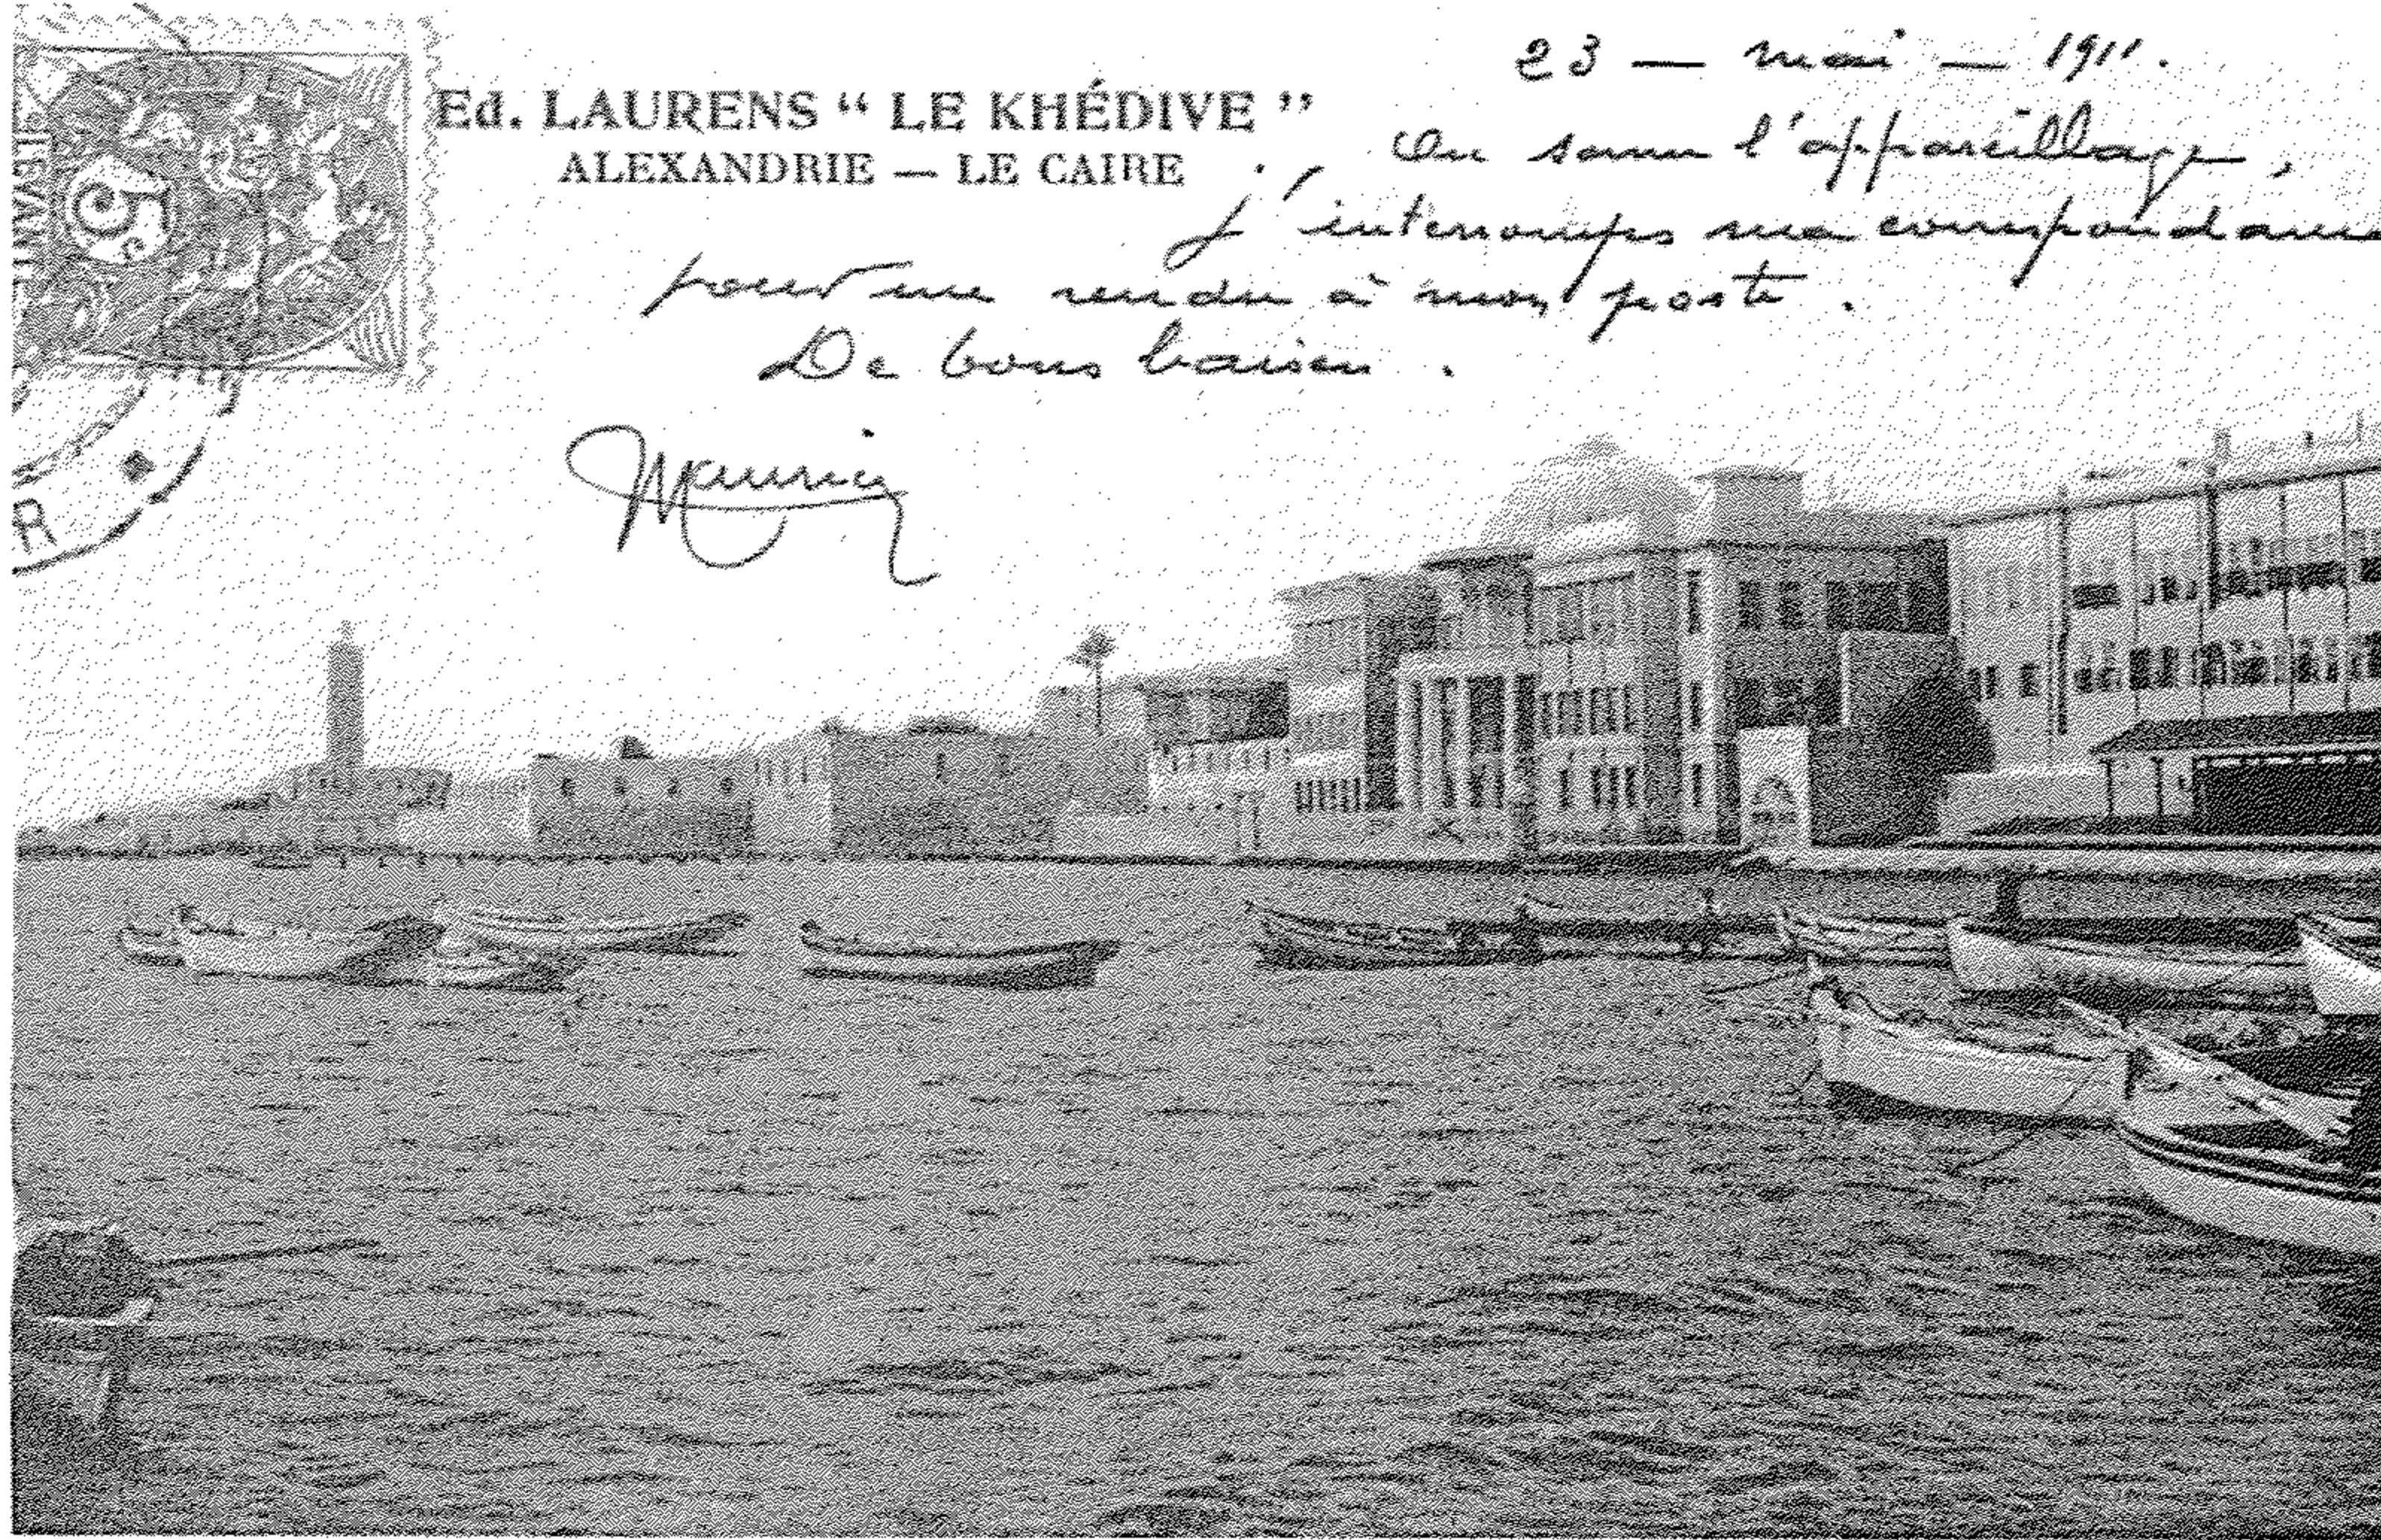 23 — mai — 1911.
Ed. LAURENS “ LE KHÉDIVE ”
ALEXANDRIE — LE CAIRE
On sonne l'appareillage,
J'interromps ma correspondance
pour me rendre à mon poste.
De bons baisers.
Maurice
LEVANT
5 c
R